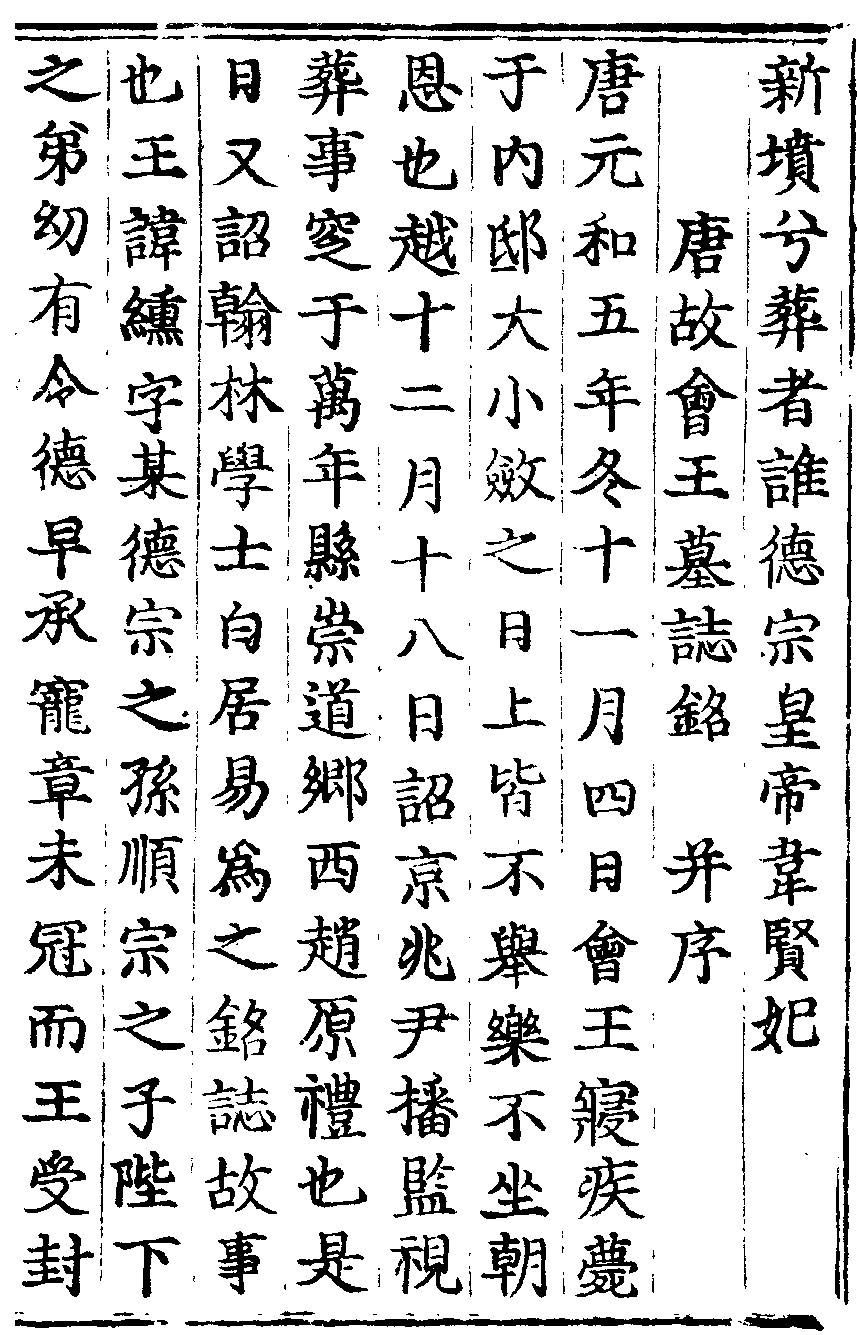 新墳兮葬者誰德宗皇帝韋賢妃
唐故會王墓誌銘 并序
唐元和五年冬十一月四日會王寢疾薨
于內邸大小斂之日上皆不舉樂不坐朝
恩也越十二月十八日詔京兆尹播監視
葬事窆于萬年縣崇道鄉西趙原禮也是
日又詔翰林學士白居易爲之銘誌故事
也王諱纁字某德宗之孫順宗之子陛下
之弟幼有令德早承寵章未冠而王受封